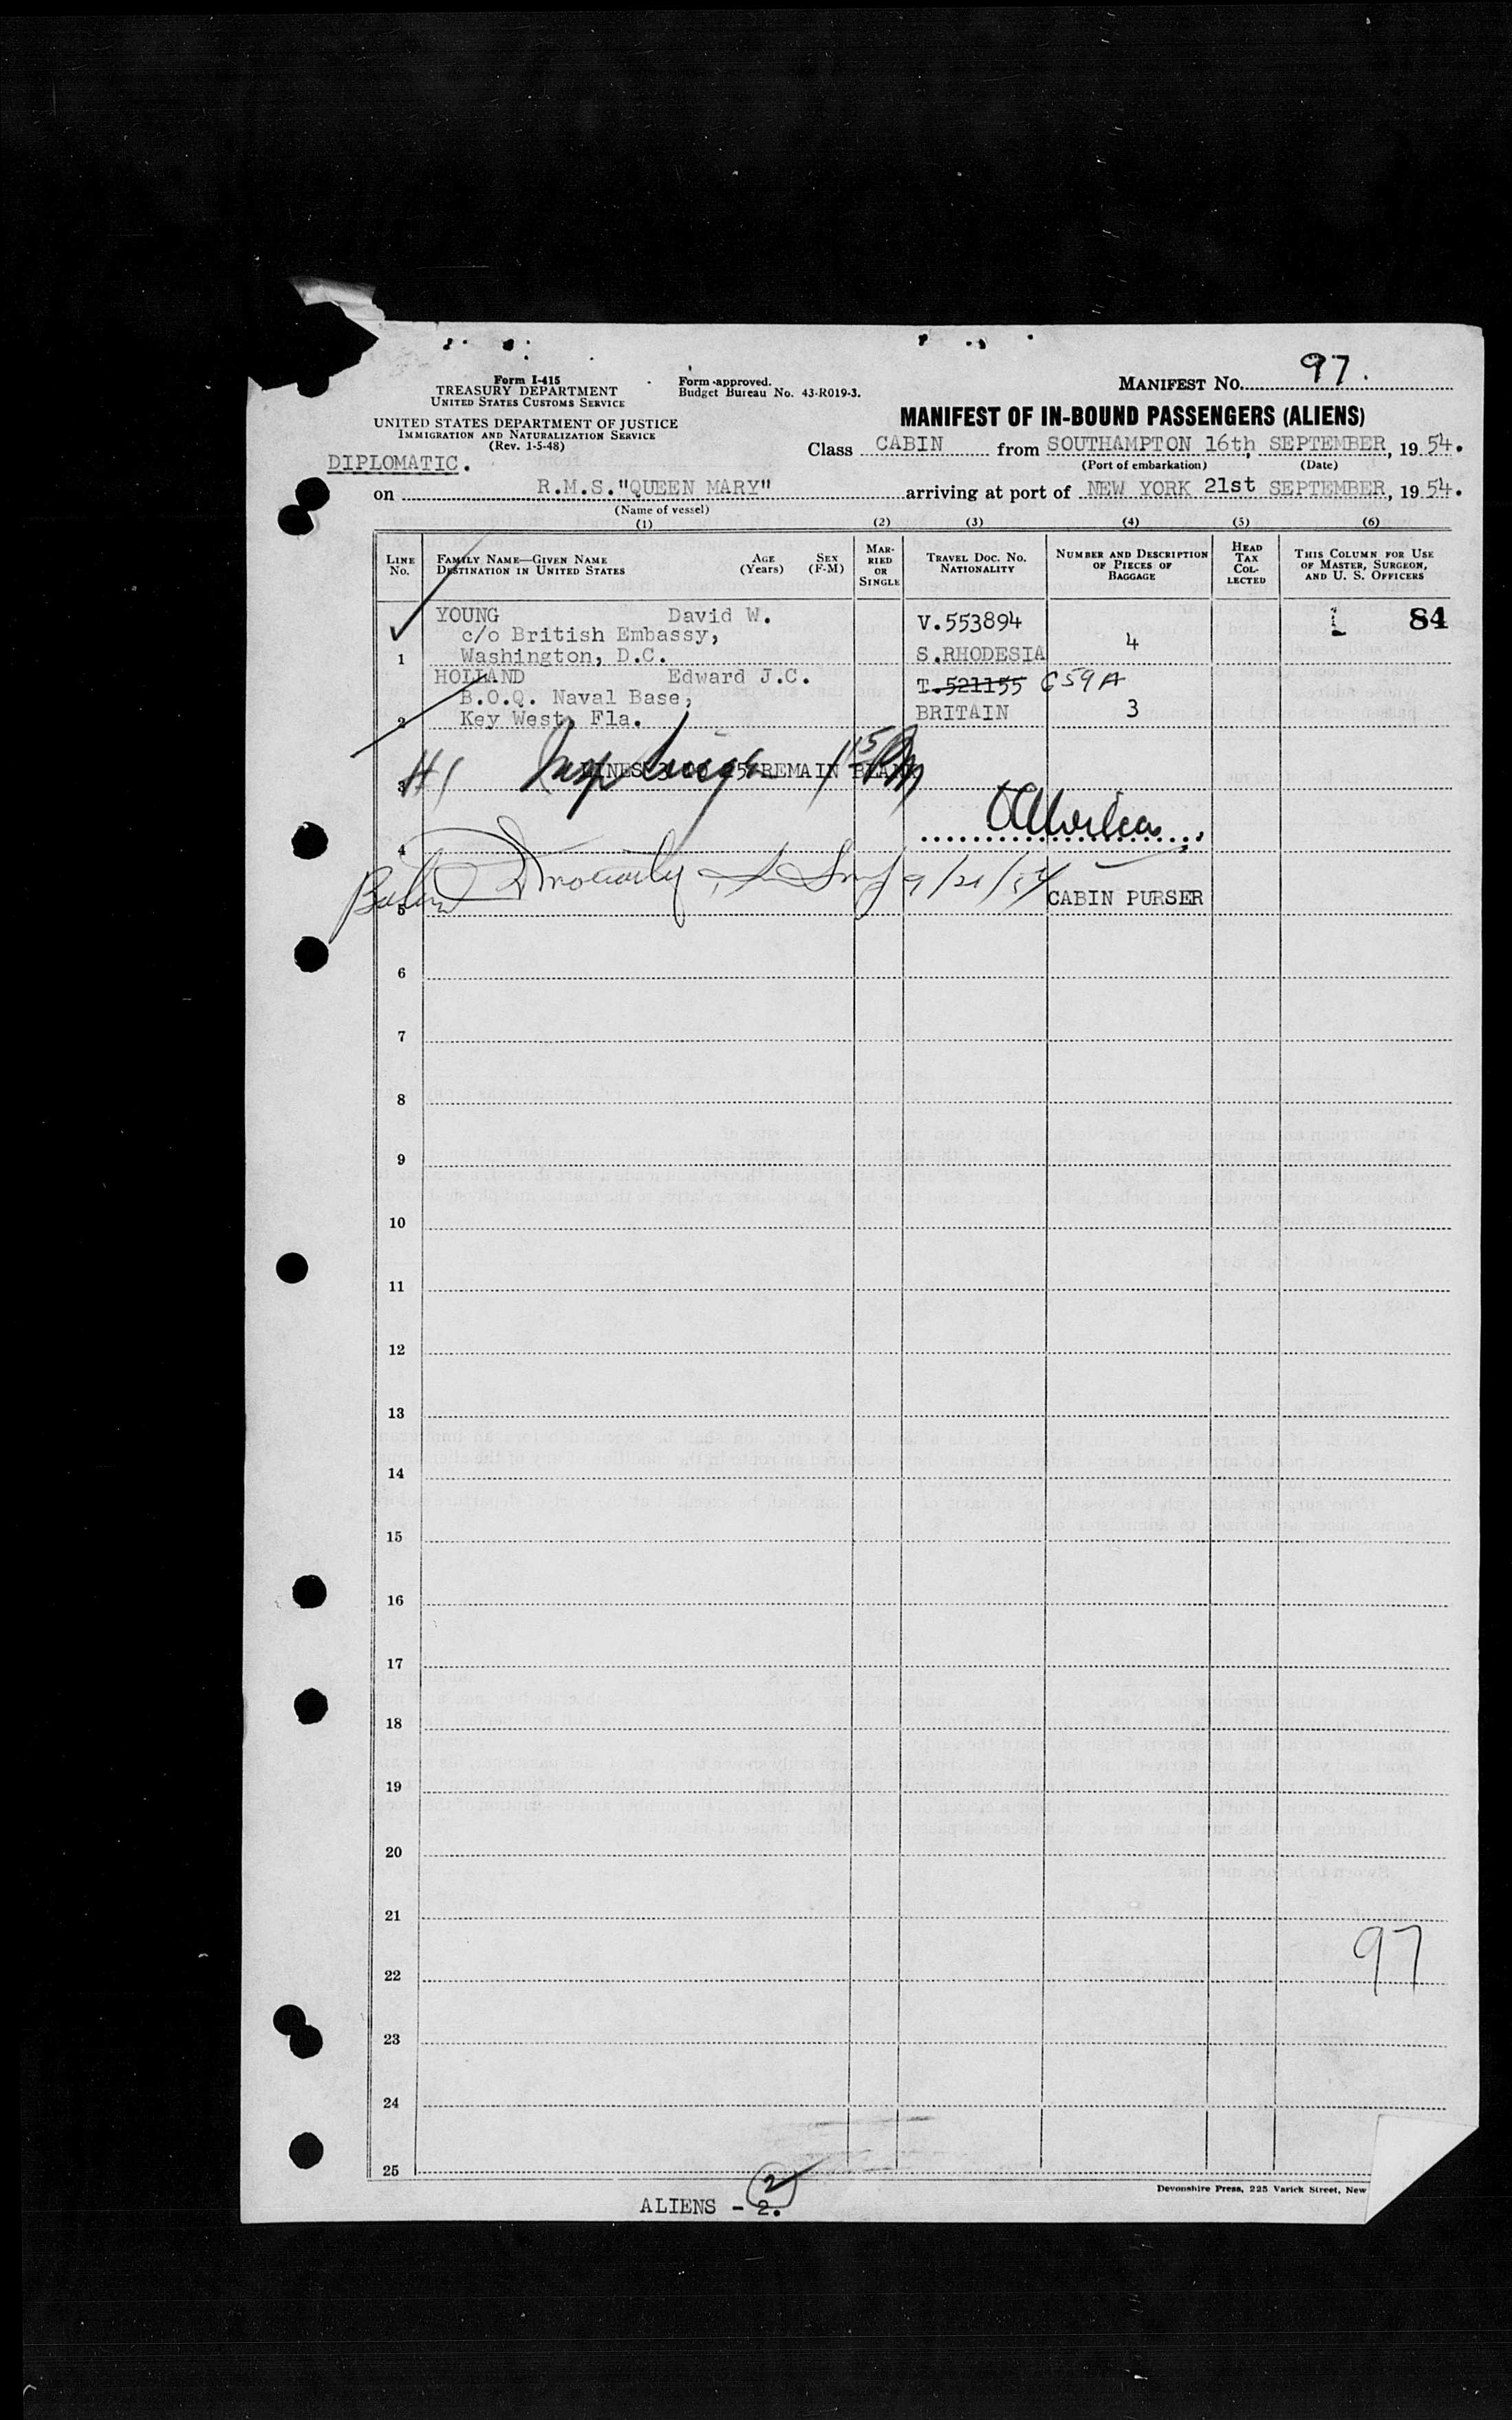 Form I-415
TREASURY DEPARTMENT
UNITED STATES CUSTOMS SERVICE
UNITED STATES DEPARTMENT OF JUSTICE
IMMIGRATION AND NATURALIZATION SERVICE
(Rev. 1-5-48)
Form approved.
Budget Bureau No. 43-R019-3.
MANIFEST No. 97.
MANIFEST OF IN-BOUND PASSENGERS (ALIENS)
DIPLOMATIC.
Class CABIN from SOUTHAMPTON 16th, SEPTEMBER, 1954.
(Port of embarkation) (Date)
on R.M.S."QUEEN MARY" arriving at port of NEW YORK 21st SEPTEMBER, 1954.
(Name of vessel)
(1) (2) (3) (4) (5) (6)
LINE No.
FAMILY NAME—GIVEN NAME
DESTINATION IN UNITED STATES
AGE (Years)
SEX (F-M)
MARRIED OR SINGLE
TRAVEL DOC. No.
NATIONALITY
NUMBER AND DESCRIPTION
OF PIECES OF
BAGGAGE
HEAD
TAX
COL-
LECTED
THIS COLUMN FOR USE
OF MASTER, SURGEON,
AND U. S. OFFICERS
YOUNG David W. V.553894 84
c/o British Embassy, 4
1 Washington, D.C. S.RHODESIA
HOLLAND Edward J.C. T.521155 G59A
B.O.Q. Naval Base,
2 Key West, Fla. BRITAIN 3
3 LINES 3 TO 25 REMAIN BLANK
4
9/21/54
5 CABIN PURSER
6
7
8
9
10
11
12
13
14
15
16
17
18
19
20
21
97
22
23
24
25
Devonshire Press, 225 Varick Street, New
2
ALIENS - 2.